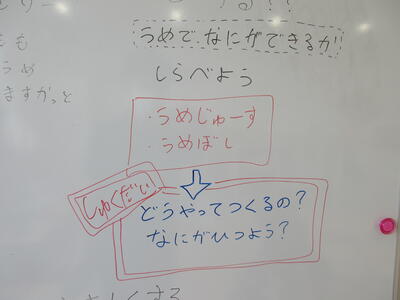 うめで、なにができるか
しらべよう
・うめじゅーす
・うめぼし
しゅくだい
どうやってつくるの?
なにがひつよう?
も
うめ
ますかっと